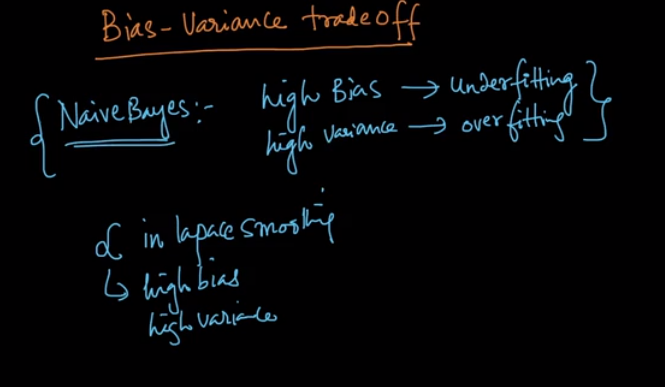 Bias-Variance tradeoff
Naive Bayes:- high Bias → Underfitting
high variance → overfitting
α in lapace smoothing
↳ high bias
high variance